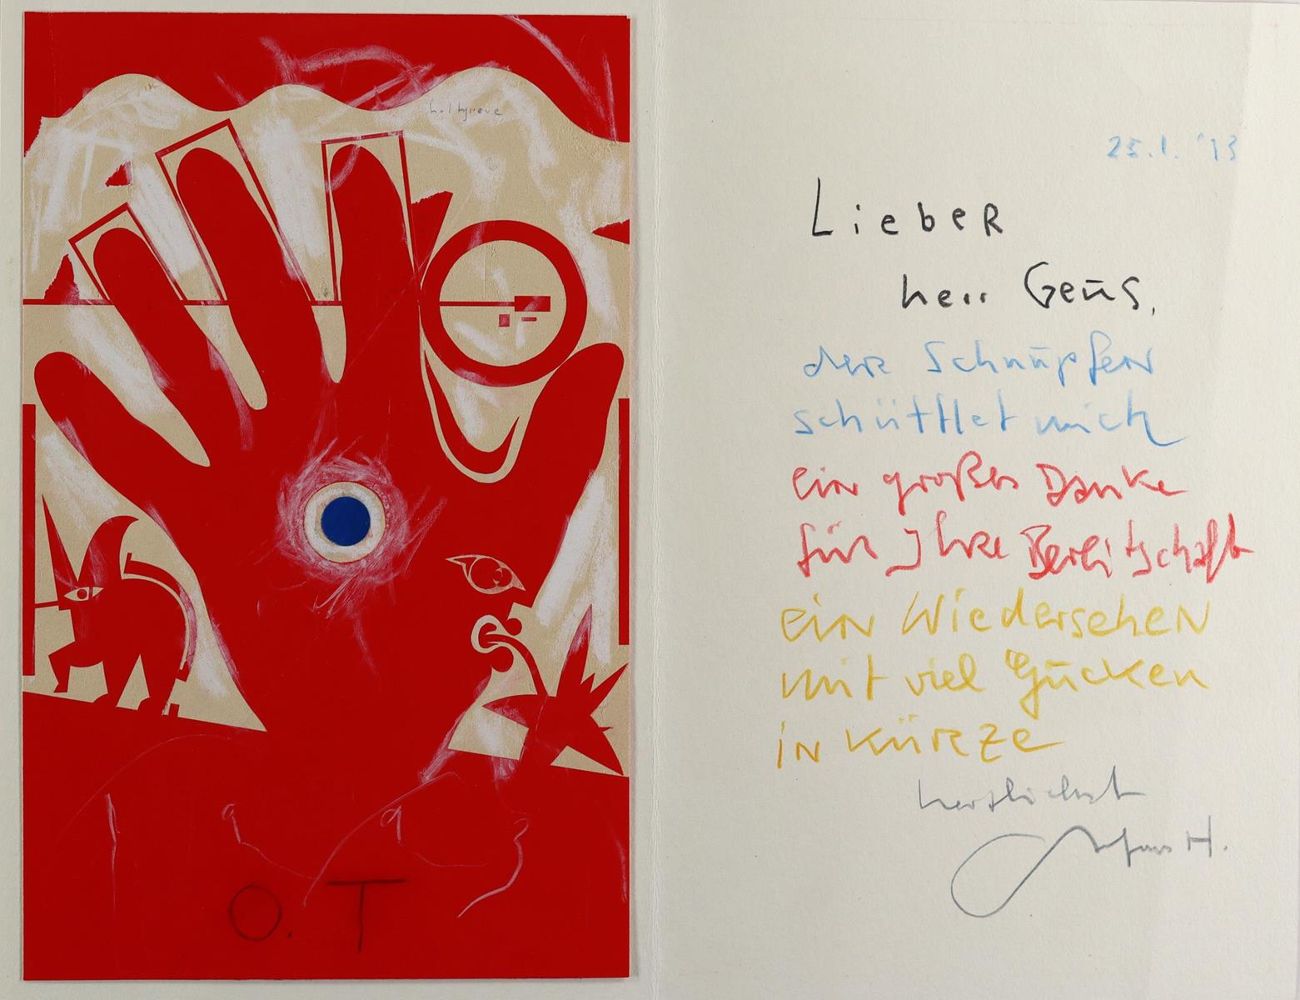 holtgreve
1993
O. T
25.1. '93
Lieber
herr Geus,
der Schnupfen
schüttlet mich
ein großes Danke
für Ihre Bereitschaft
ein Wiedersehen
mit viel Gucken
in Kürze
herzlichst
H.